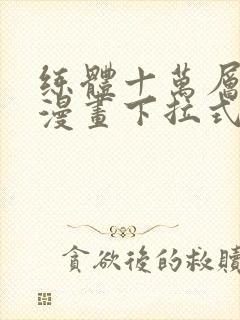 練體十萬層
漫畫下拉式
貪欲後的救贖